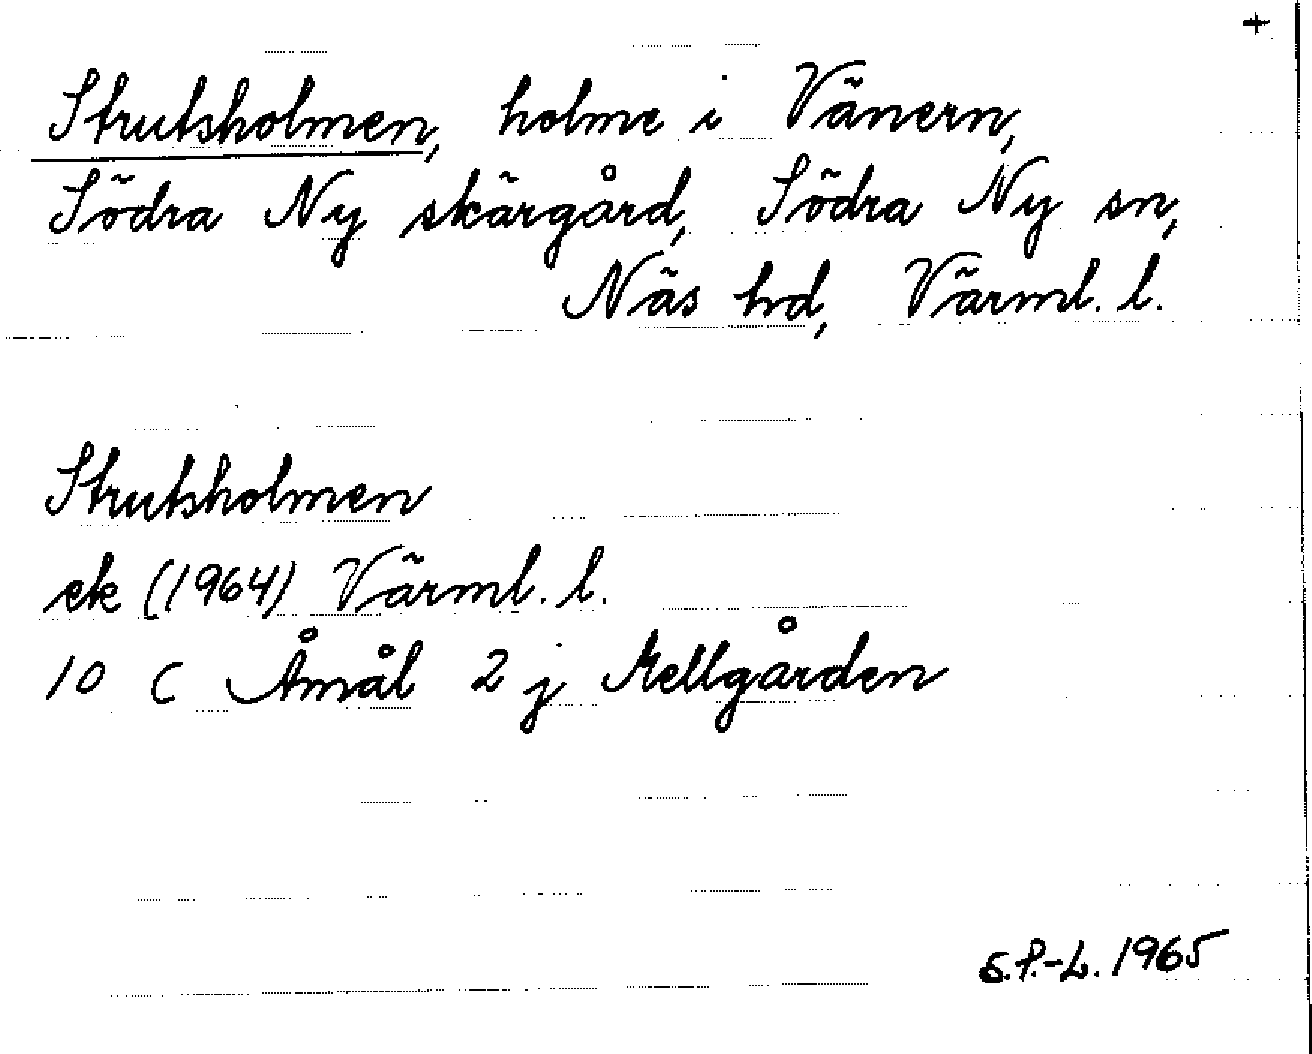 +
Strutsholmen, holme i Vänern,
Södra Ny skärgård, Södra Ny sn,
Näs hd, Värml. l.
Strutsholmen
ek (1964) Värml. l.
10 C Åmål 2 j Mellgården
S.P.-L. 1965